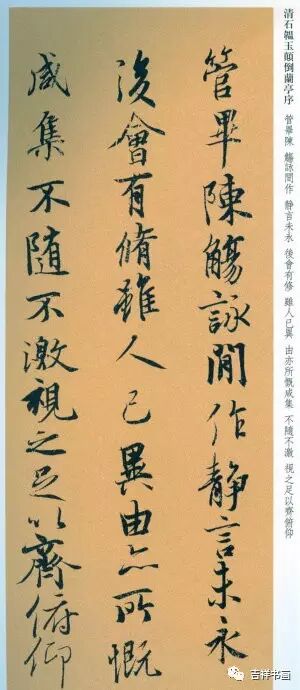 清石韞玉顛倒蘭亭序 管畢陳 觴詠間作 靜言未永 後會有修 雖人已異 由亦所慨咸集 不隨不激 視之足以齊俯仰
管畢陳觴詠間作靜言未永
後會有脩雖人已異由亦所慨
咸集不隨不激視之足以齊俯仰
吉祥书画